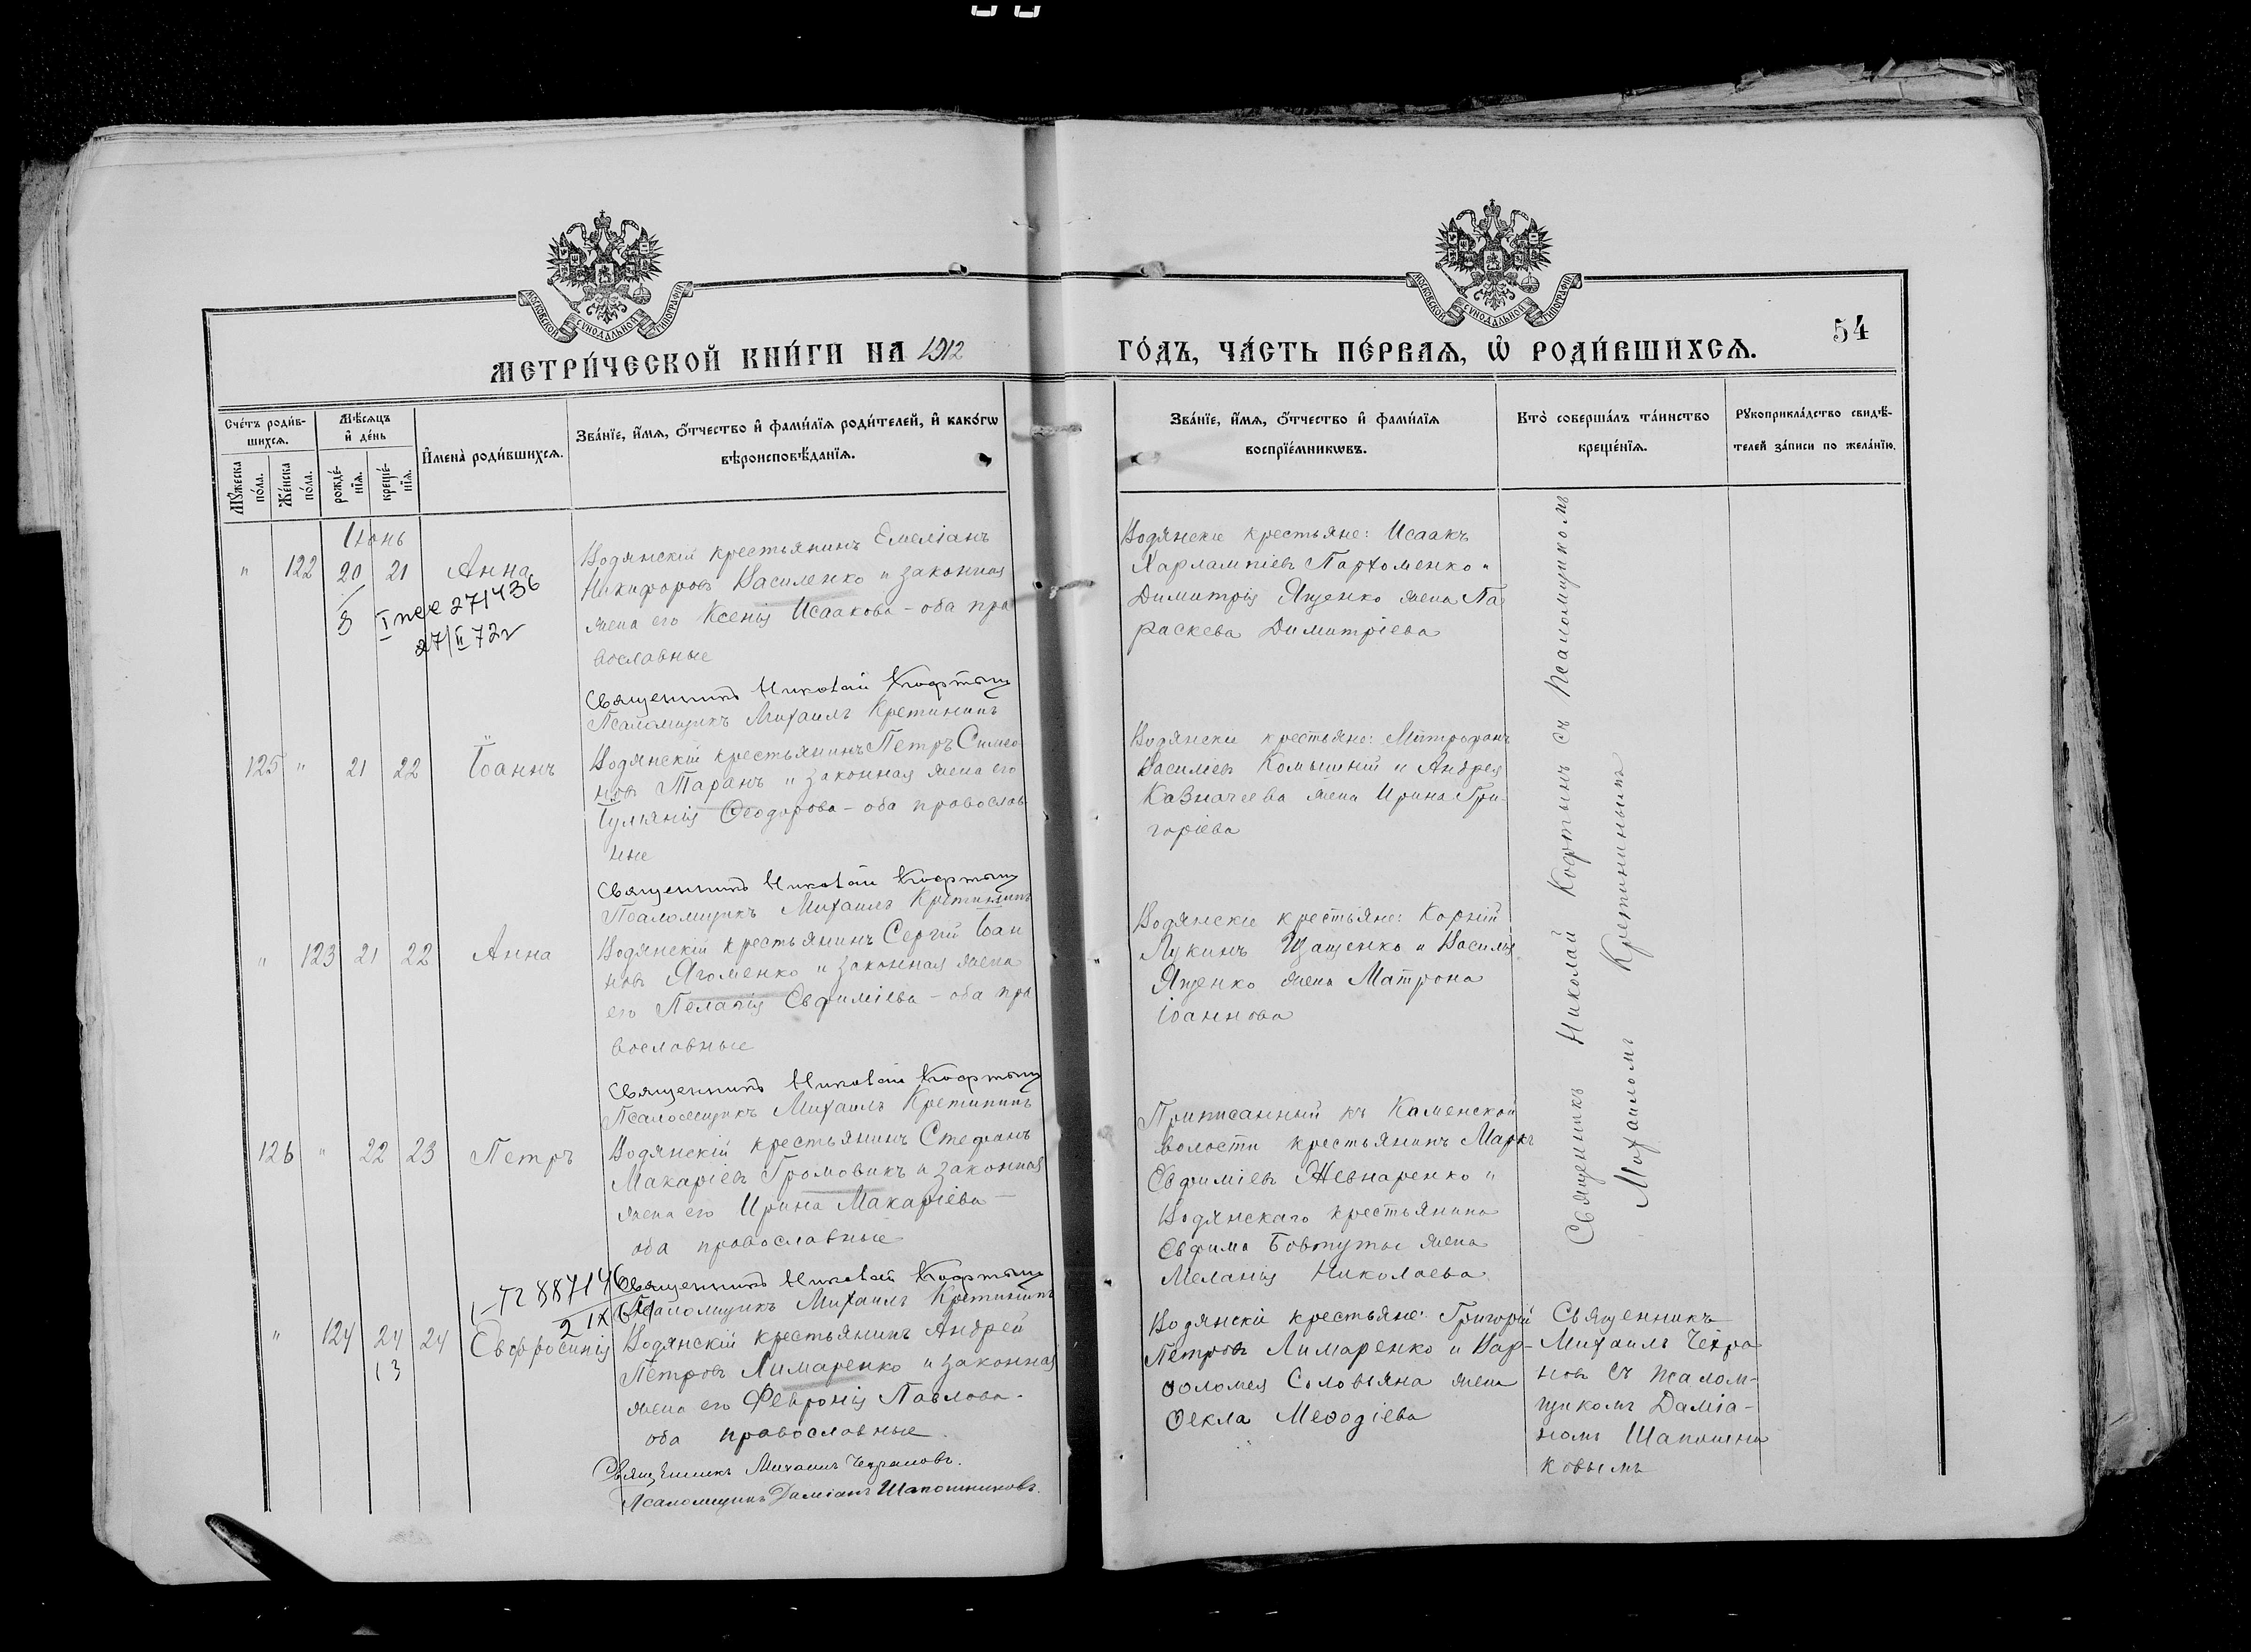 МОСКОВСКОЙ СѴНОДАЛЬНОЙ ТИПОГРАФІИ
МОСКОВСКОЙ СѴНОДАЛЬНОЙ ТИПОГРАФІИ
МЕТРИ́ЧЕСКОЙ КНИ́ГИ НА 1912
ГО́ДЪ, ЧА́СТЬ ПЕ́РВАѦ, Ѡ҆ РОДИ́ВШИХСѦ.
54
Сче́тъ роди́в-
шихсѧ.
Мꙋ́жеска по́ла.
Же́нска по́ла.
Мѣ́сѧцъ
и҆ де́нь
рожде́-
нїѧ.
креще́-
нїѧ.
И҆мена̀ роди́вшихсѧ.
Зва́нїе, и҆́мѧ, ѻ҆́тчество и҆ фами́лїѧ роди́телей, и҆ како́гѡ
вѣроисповѣ́данїѧ.
Зва́нїе, и҆́мѧ, ѻ҆́тчество и҆ фами́лїѧ
воспрїе́мникѡвъ.
Кто̀ соверша́лъ та́инство
креще́нїѧ.
Рꙋкоприкла́дство свидѣ́-
телей за́писи по жела́нїю.
Іюнь
" 122 20 21 Анна
271436
27/II 72г
Водянскій крестьянинъ Емеліанъ
Никифоровъ Василенко и законная
жена его Ксенія Исаакова – оба пра
вославные
Священникъ Николай Кофтынъ
Псаломщикъ Михаилъ Кретининъ
Водянскіе крестьяне: Исаакъ
Харлампіевъ Пархоменко и
Димитрія Ященко жена Па
раскева Димитріева
125 " 21 22 Іоаннъ
Водянскій крестьянинъ Петръ Симео
новъ Таранъ и законная жена его
Іуліанія Ѳеодорова – оба православ
ные
Священникъ Николай Кофтынъ
Псаломщикъ Михаилъ Кретининъ
Водянскіе крестьяне: Митрофанъ
Василіевъ Комышній и Андрея
Казначеева жена Ирина Гри-
горіева
" 123 21 22 Анна
Водянскій крестьянинъ Сергій Іоан
новъ Ягоменко и законная жена
его Пелагія Евфиміева – оба пра
вославные
Священникъ Николай Кофтынъ
Псаломщикъ Михаилъ Кретининъ
Водянскіе крестьяне: Корній
Лукинъ Ищенко и Василія
Ященко жена Матрона
Іоаннова
126 " 22 23 Петръ
Водянскій крестьянинъ Стефанъ
Макаріевъ Громовикъ и законная
жена его Ирина Макаріева –
оба православные
Священникъ Николай Кофтынъ
Псаломщикъ Михаилъ Кретининъ
Приписанный къ Каменской
волости крестьянинъ Маркъ
Евфиміевъ Жевнаренко и
Водянскаго крестьянина
Евфима Бовтуты жена
Меланія Николаева
Священникъ Николай Кофтынъ съ псаломщикомъ
Михаиломъ Кретининымъ
" 124 24 24 Евфросинія
13
Водянскій крестьянинъ Андрей
Петровъ Лимаренко и законная
жена его Февронія Павлова –
оба православные.
Священникъ Михаилъ Чехрановъ.
Псаломщикъ Даміанъ Шапошниковъ.
Водянскіе крестьяне: Григорій
Петровъ Лимаренко и Вар-
ѳоломея Соловьяна жена
Ѳекла Меѳодіева
Священникъ
Михаилъ Чехра
новъ съ псалом-
щикомъ Даміа-
номъ Шапошни
ковымъ